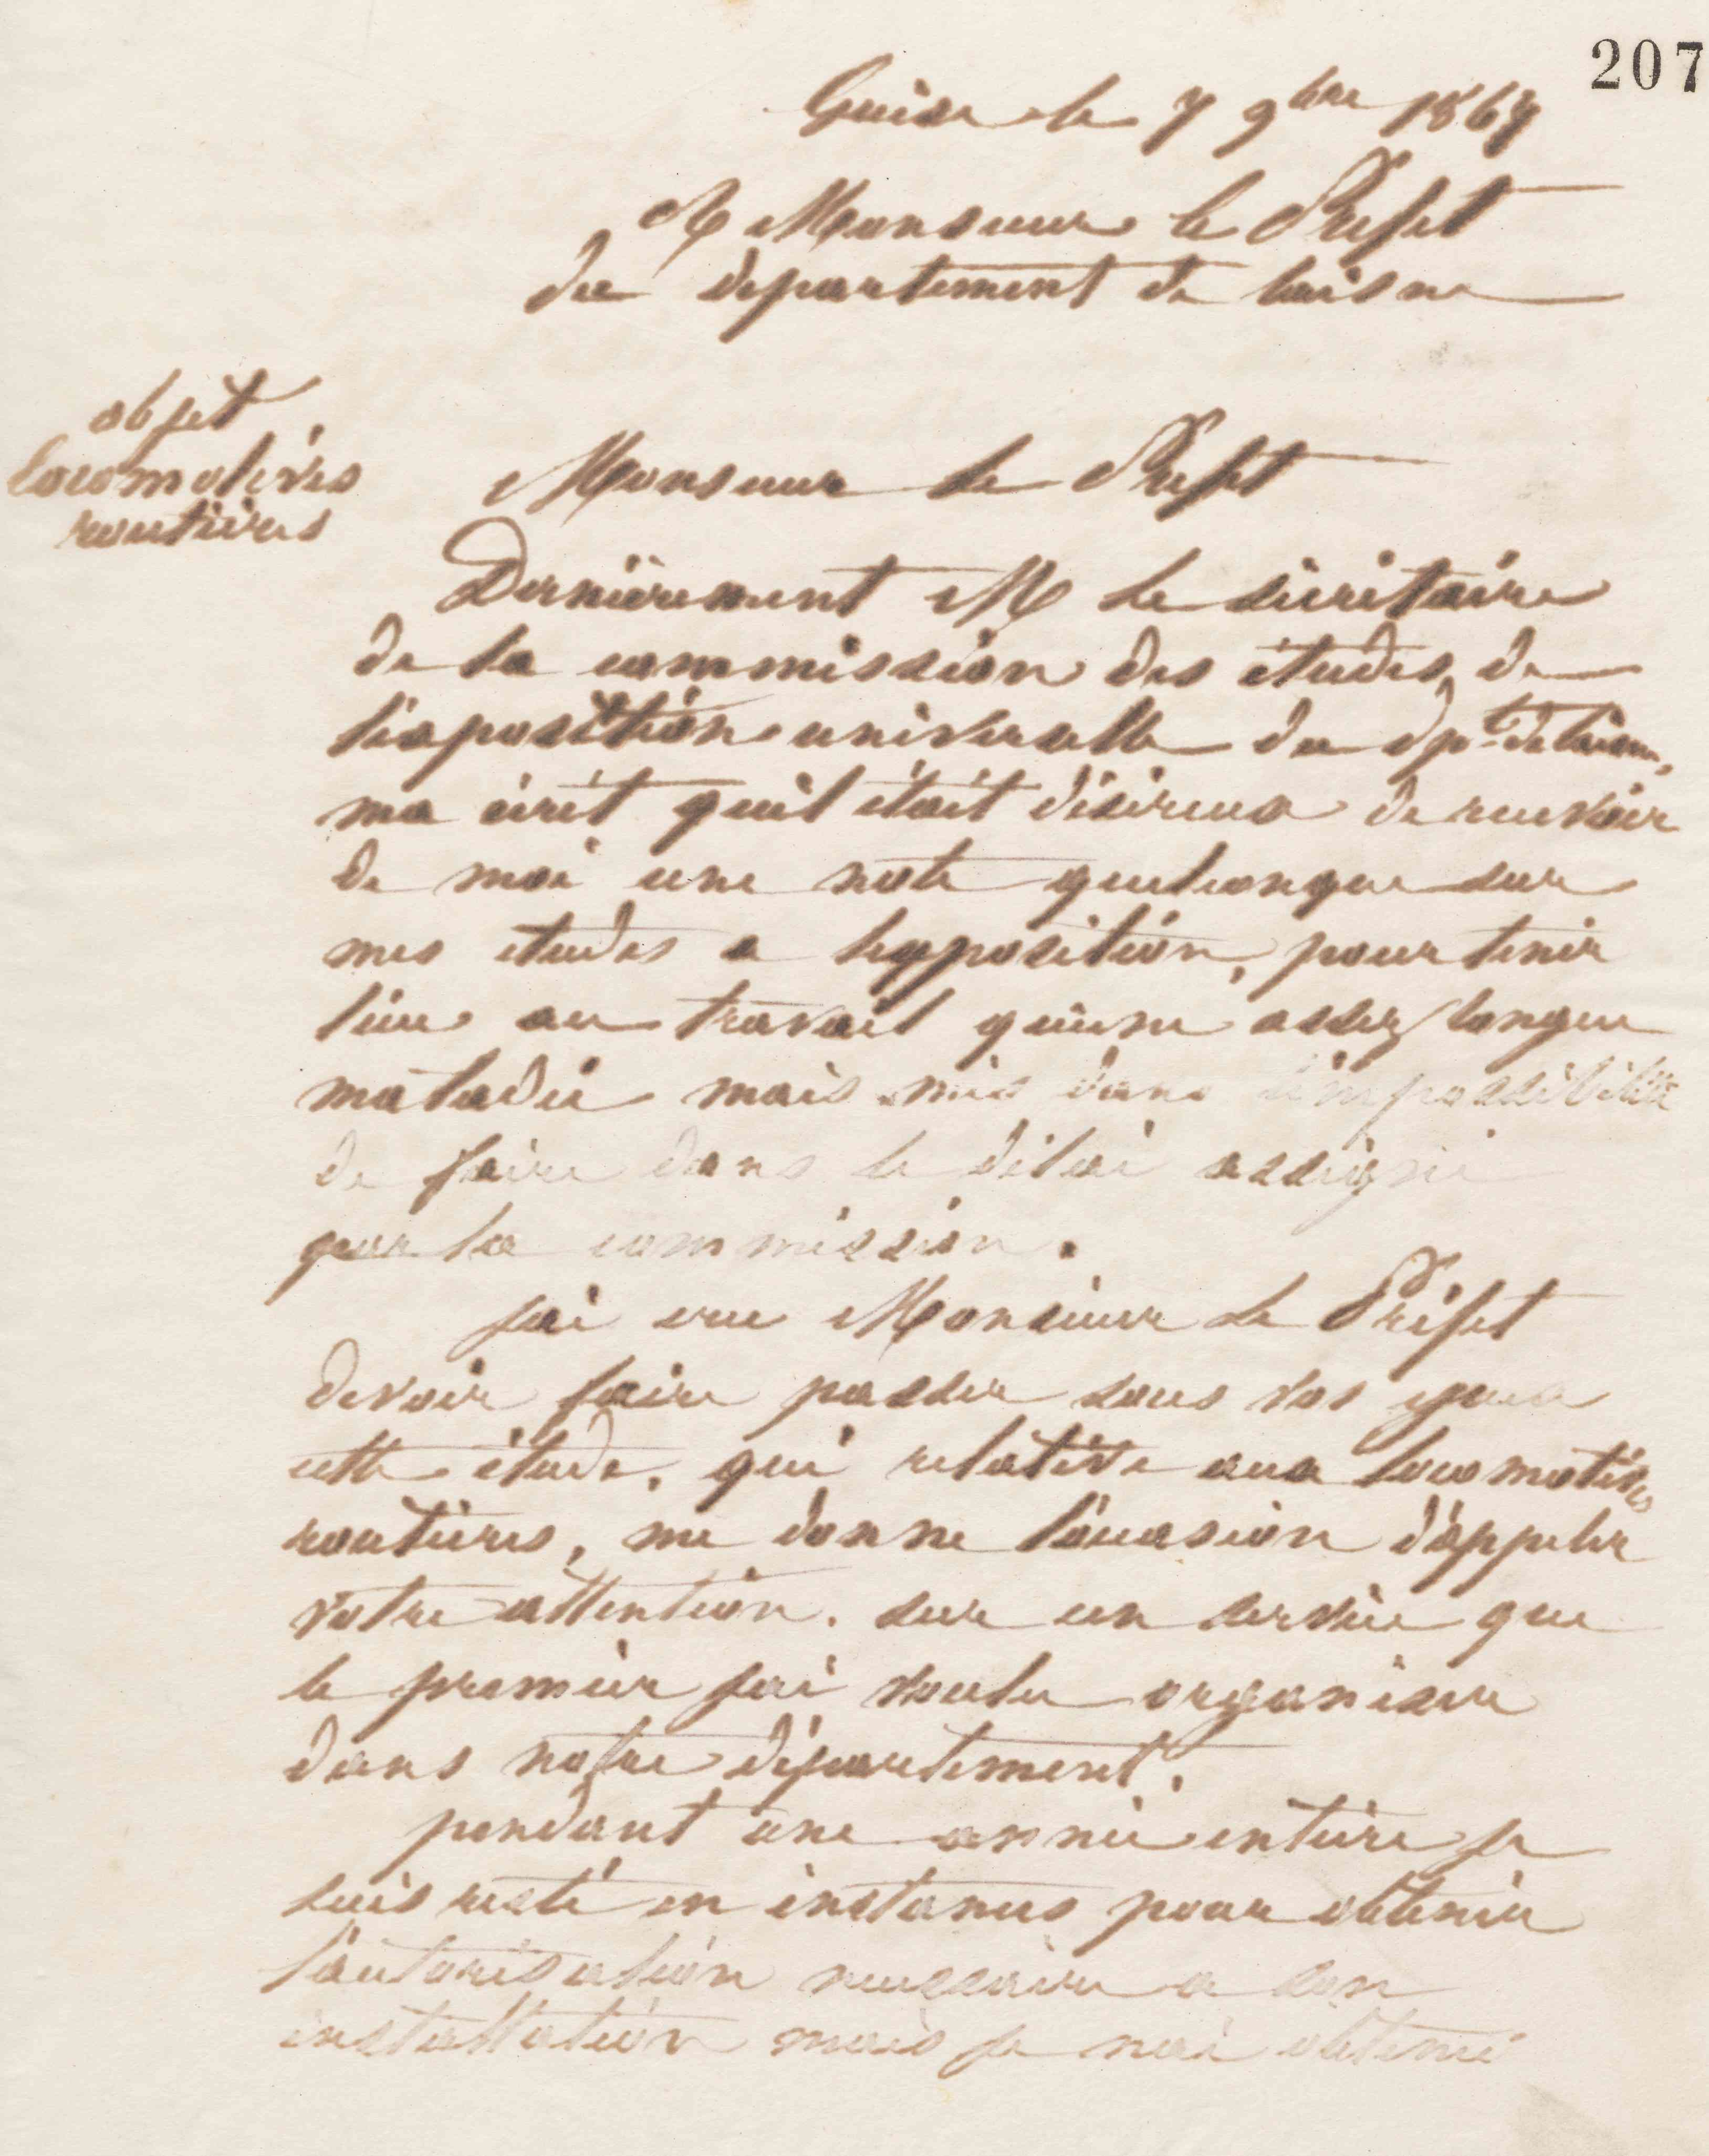 207
Guise le 7 9bre 1867
A Monsieur le Préfet
du département de laisne
objet
locomotives
routières
Monsieur le Préfet
Dernièrement M le sécrétaire
de la commission des études, de
l'exposition universelle du dpt de laisne,
ma écrit quil était désireux de recevoir
de moi une note quelconque sur
mes études a lexposition, pour tenir
lieu au travail qu'une assez longue
maladie mais mis dans l'impossibilité
de faire dans le délai assigné
par la commission.
jai cru Monsieur le Préfet
devoir faire passer sous vos yeux
cette étude, qui relative aux locomotives
routières, me donne l'occasion d'appeler
votre attention, sur un service que
le premier jai voulu organiser
dans notre département.
pendant une année entière je
suis resté en instances pour obtenir
l'autorisation necessaire a son
installation mais je nai obtenu